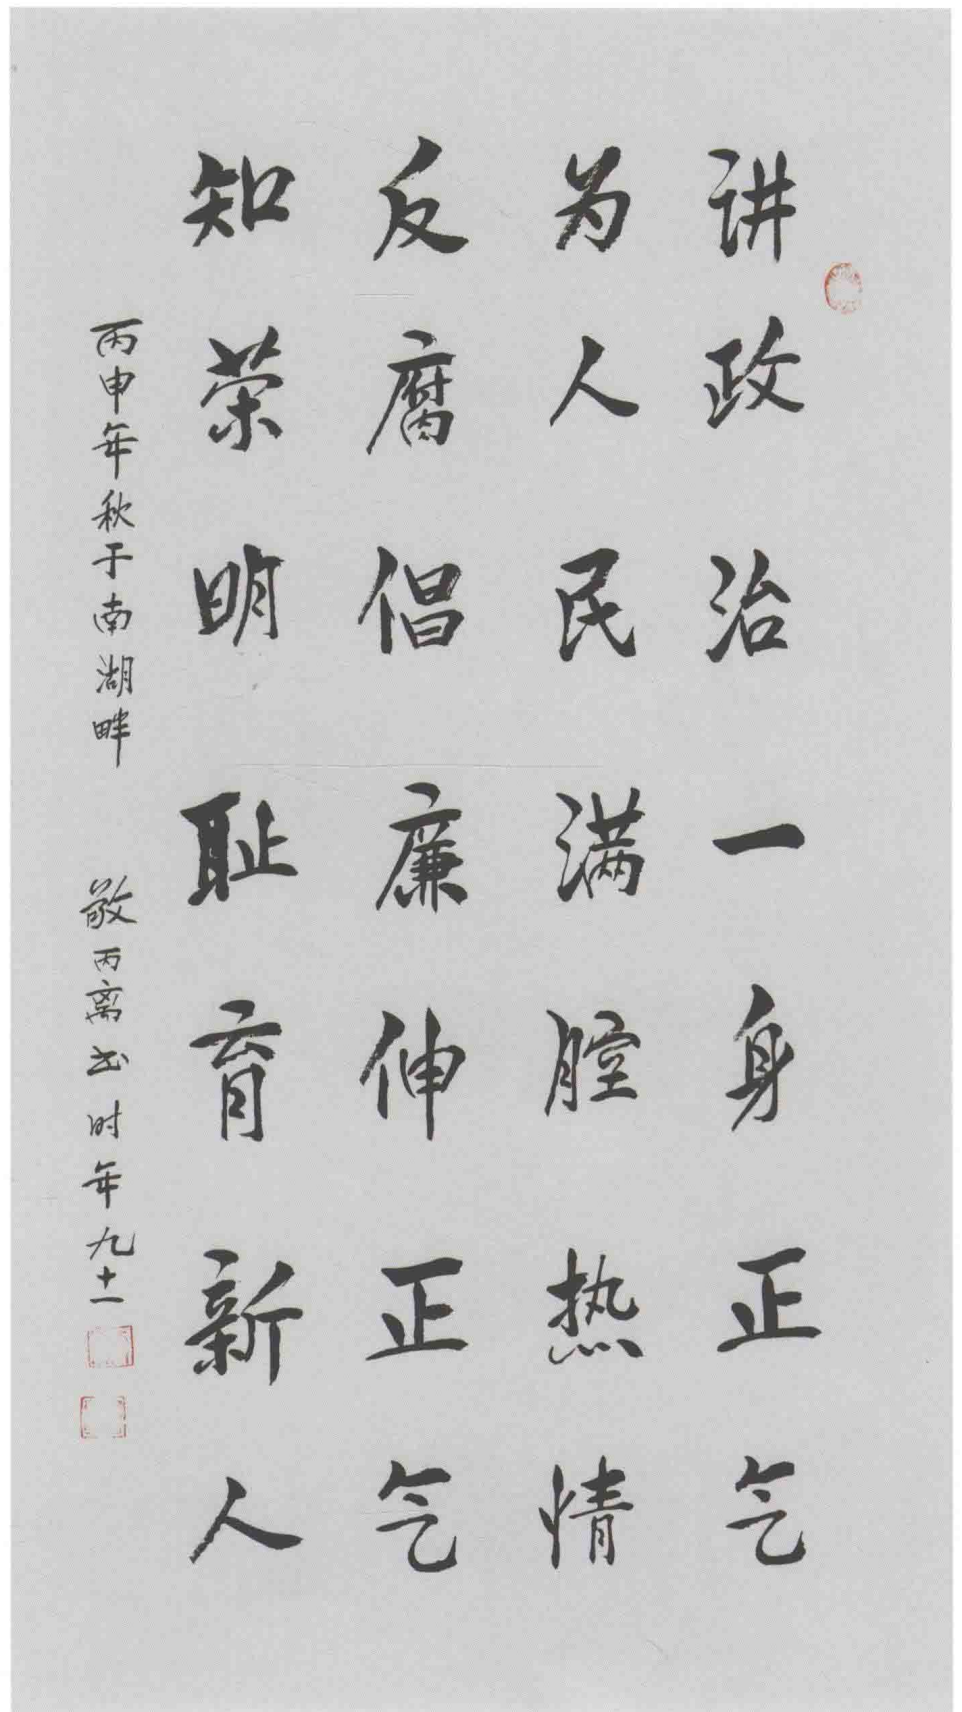 讲政治一身正气
为人民满腔热情
反腐倡廉伸正气
知荣明耻育新人
丙申年秋于南湖畔 敬丙离书时年九十一